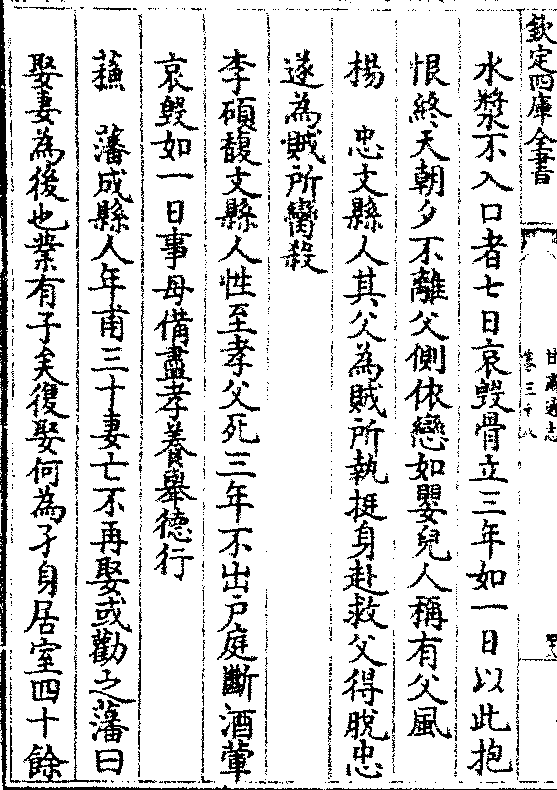 欽定四庫全書
甘肅通志
卷三十八
水漿不入口者七日哀毀骨立三年如一日以此抱
恨終天朝夕不離父側依戀如嬰兒人稱有父風
楊　忠文縣人其父為賊所執挺身赴救父得脫忠
遂為賊所臠殺
李碩馥文縣人性至孝父死三年不出戶庭斷酒葷
哀毀如一日事母備盡孝養舉德行
蘓　藩成縣人年甫三十妻亡不再娶或勸之藩曰
娶妻為後也業有子矣復娶何為孑身居室四十餘